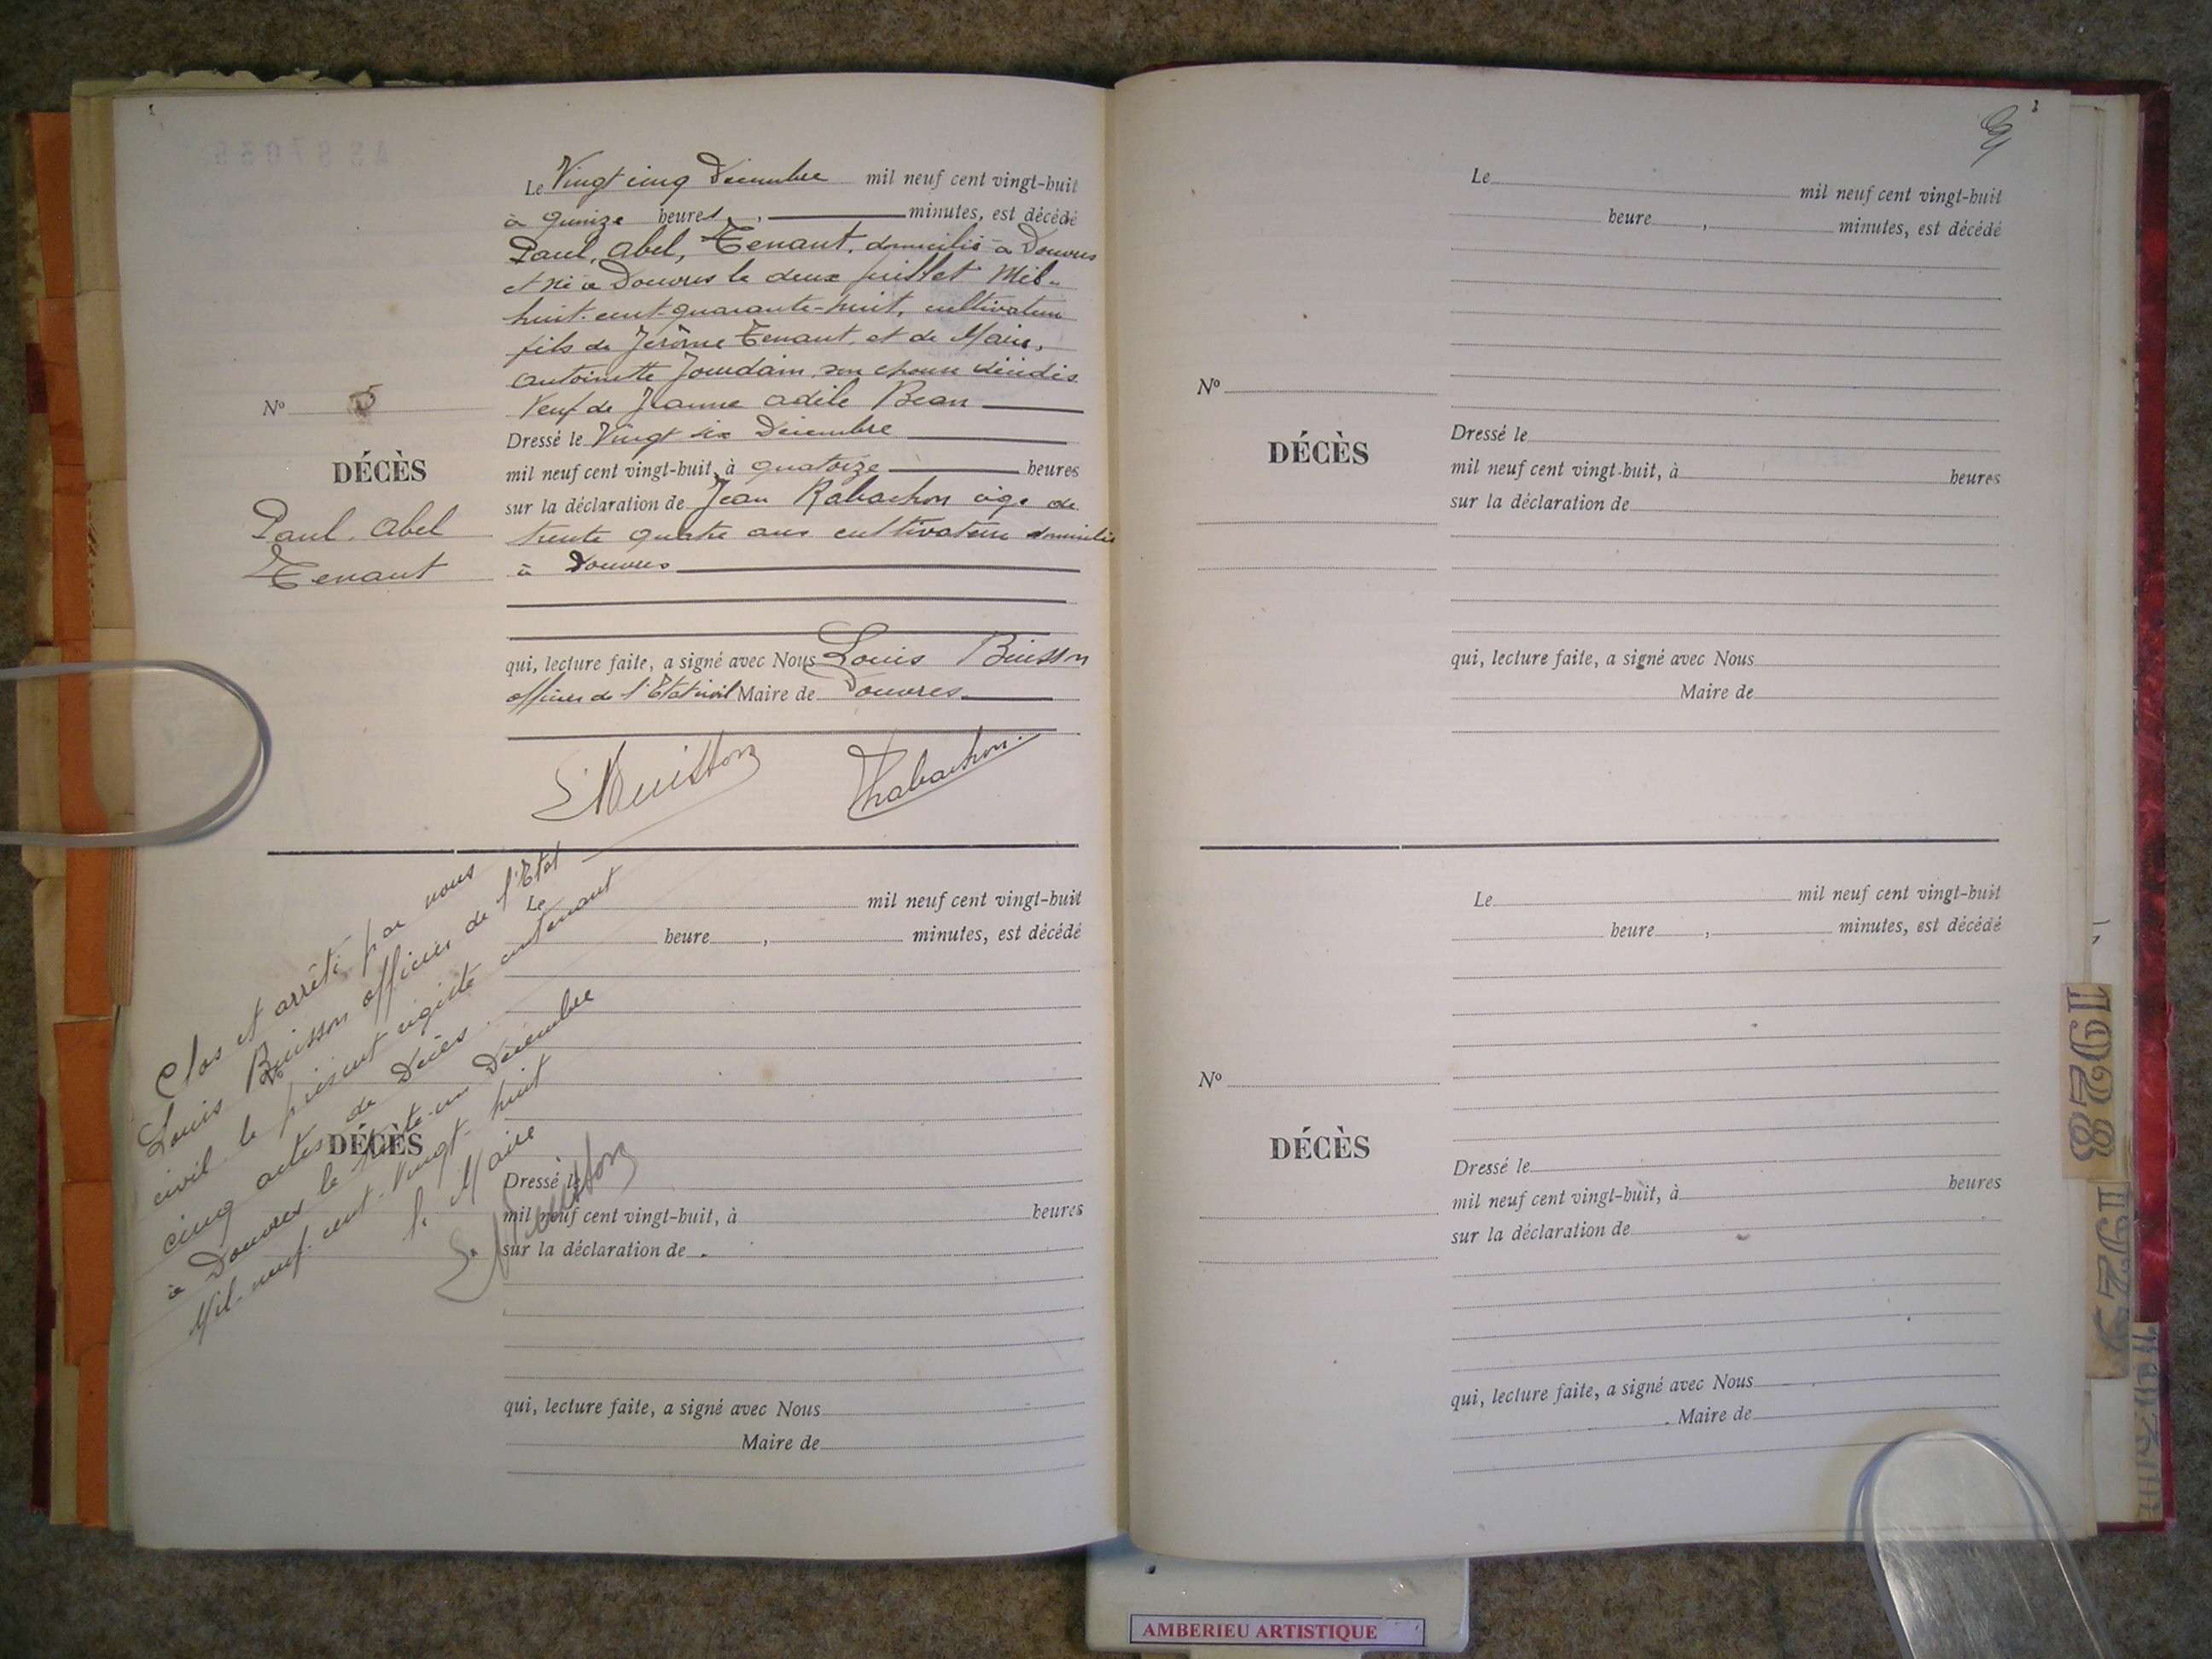 Le Vingt cinq Décembre mil neuf cent vingt-huit
à quinze heures, minutes, est décédé
Paul, Abel, Tenant, domicilié à Douvres
et né à Douvres le deux juillet Mil-
huit-cent-quarante-huit, cultivateur
fils de Jérôme Tenant, et de Marie,
Antoinette Jourdain, son épouse décédés
Veuf de Jeanne Adèle Bean
Nº 5
DÉCÈS
Paul, Abel
Tenant
Dressé le Vingt six Décembre
mil neuf cent vingt-huit, à quatorze heures
sur la déclaration de Jean Rabachon âgé de
trente quatre ans cultivateur domicilié
à Douvres
qui, lecture faite, a signé avec Nous Louis Buisson
officier de l'Etat civil Maire de Douvres
L Buisson Rabachon
Clos et arrêté par nous
Louis Buisson officier de l'Etat
civil le présent registre contenant
cinq actes de Décès
à Douvres le trente-un Décembre
Mil-neuf-cent-Vingt-huit
le Maire
L Buisson
Le mil neuf cent vingt-huit
heure , minutes, est décédé
DÉCÈS
Dressé le
mil neuf cent vingt-huit, à heures
sur la déclaration de
qui, lecture faite, a signé avec Nous
Maire de
Le mil neuf cent vingt-huit
heure , minutes, est décédé
Nº
DÉCÈS
Dressé le
mil neuf cent vingt-huit, à heures
sur la déclaration de
qui, lecture faite, a signé avec Nous
Maire de
Le mil neuf cent vingt-huit
heure , minutes, est décédé
Nº
DÉCÈS
Dressé le
mil neuf cent vingt-huit, à heures
sur la déclaration de
qui, lecture faite, a signé avec Nous
Maire de
1928
1929
AMBERIEU ARTISTIQUE